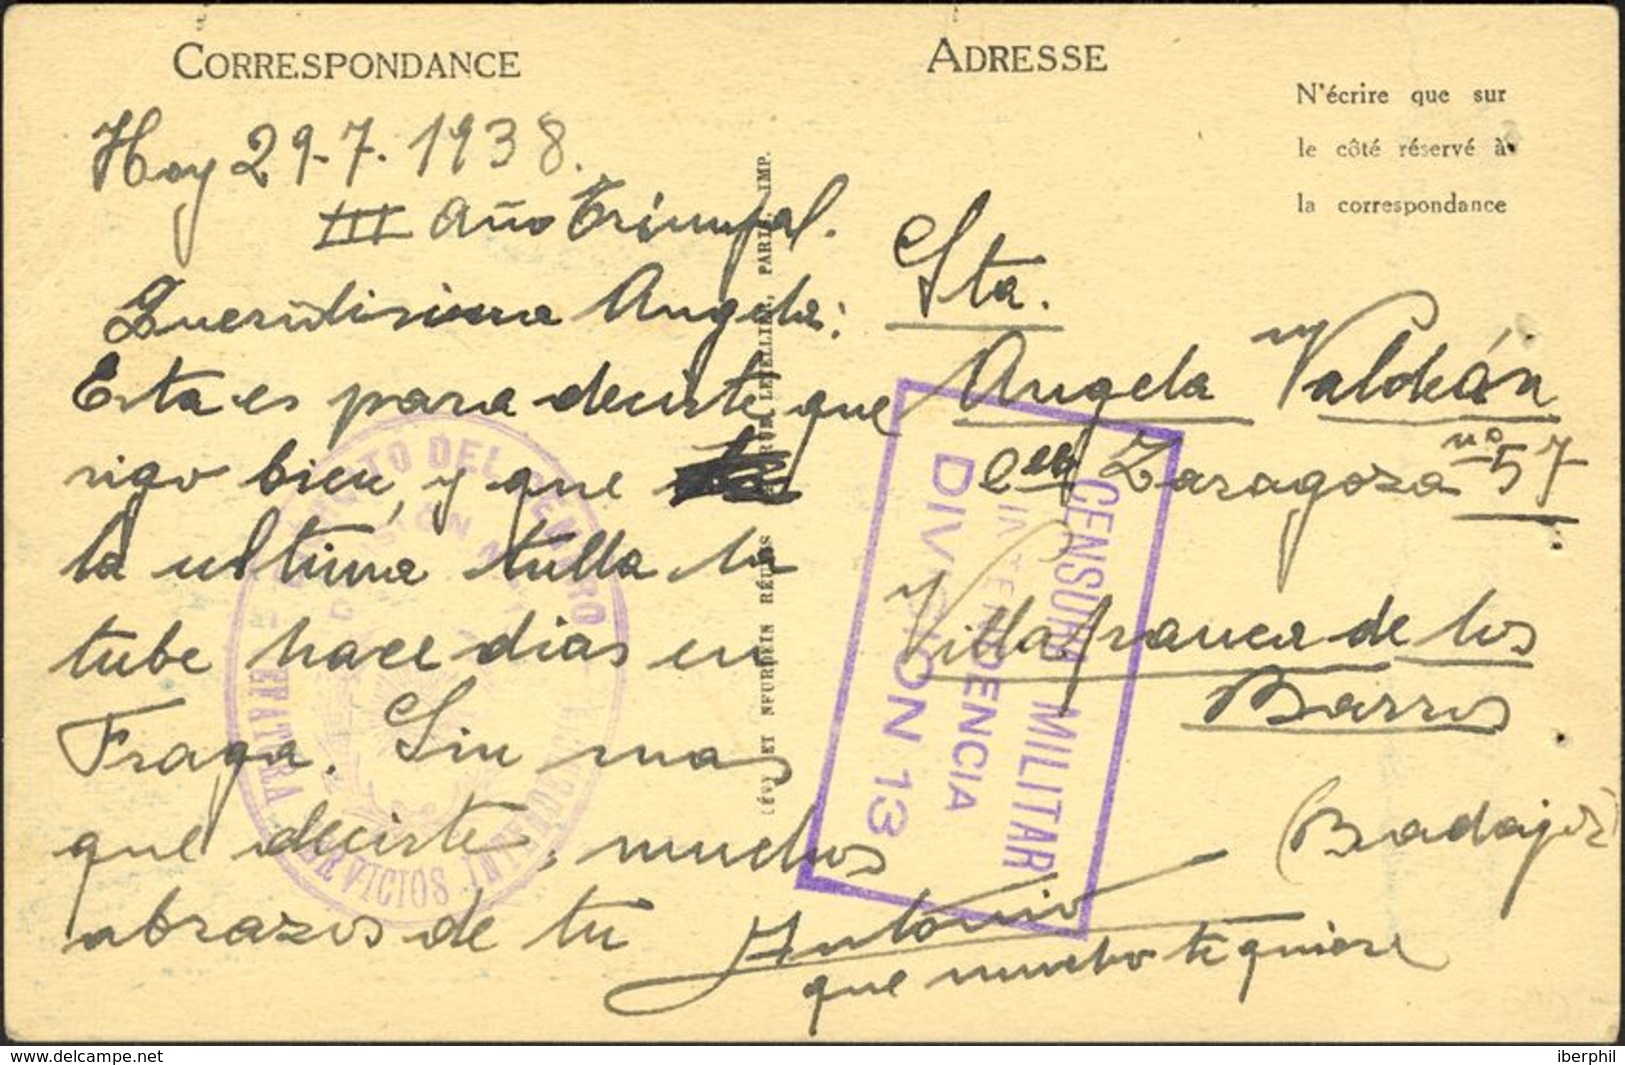 CORRESPONDANCE
Hoy 29-7-1938.
III Año Triunfal.
Queridisima Angela:
Esta es para decirte que
sigo bien, y que
la ultima tulla la
tube hace dias en
Fraga. Sin mas
que decirte, muchos
abrazos de tu
Antonio
que mucho te quiere
ADRESSE
N'écrire que sur
le côté réservé à
la correspondance
Sta.
Angela Valdeán
Zaragoza nº 57
Villafranca de los
Barros
(Badajoz)
CENSURA MILITAR
INTENDENCIA
DIVISION 13
EJERCITO DEL CENTRO
SERVICIOS
LÉVY ET NEURDEIN RÉUNIS RUE LETELLIER, PARIS. IMP.
www.delcampe.net
iberphil